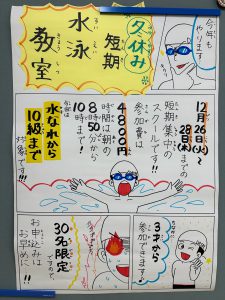 今年も
やります
冬休み
短期
水泳
すいえい
教室
きょうしつ
12月26日(火)〜
28日(木)までの
短期集中の
スクールです!!
参加費は
4800円
時間は朝の
8時50分から
10時まで!
水なれから
10級まで
対象です!!!
3才から
参加できます!
30名限定
ですので、
お申込みは
お早めに!!